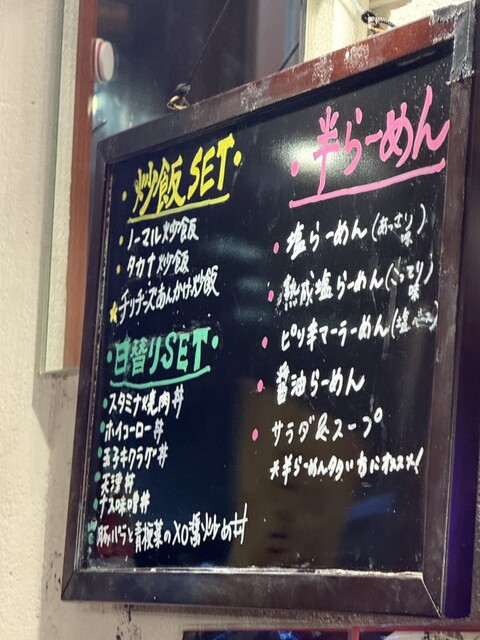 ・炒飯SET・
・ノーマル炒飯
・タカナ炒飯
★チリチーズあんかけ炒飯
・日替りSET・
・スタミナ焼肉丼
・ホイコーロー丼
・玉子キクラゲ丼
・天津丼
・ナス味噌丼
・豚バラと青梗菜のXO醤炒め丼
・半らーめん
・塩らーめん(あっさり味)
・熟成塩らーめん(こってり味)
・ピリ辛マーラーめん(塩
・醤油らーめん
・サラダ&スープ